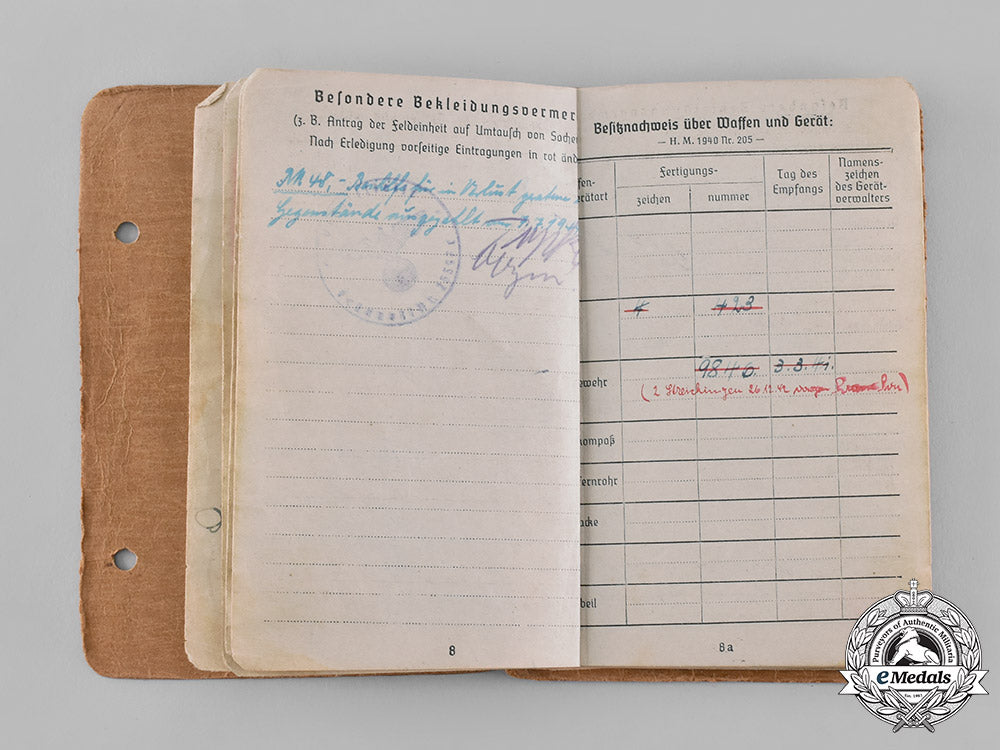 Besondere Bekleidungsvermer
(z. B. Antrag der Feldeinheit auf Umtausch von Sachen
Nach Erledigung vorseitige Eintragungen in rot änd
RM 48,- für in Verlust geratene
Gegenstände eingezahlt
8
Besitznachweis über Waffen und Gerät:
— H. M. 1940 Nr. 205 —
fen-
erätart
Fertigungs-
zeichen
nummer
Tag des
Empfangs
Namens-
zeichen
des Gerät-
verwalters
4 423
ewehr 9846. 3.3.41.
(2 Streichungen 26.12.42
ompaß
fernrohr
acke
beil
8a
Purveyors of Authentic Militaria
eMedals